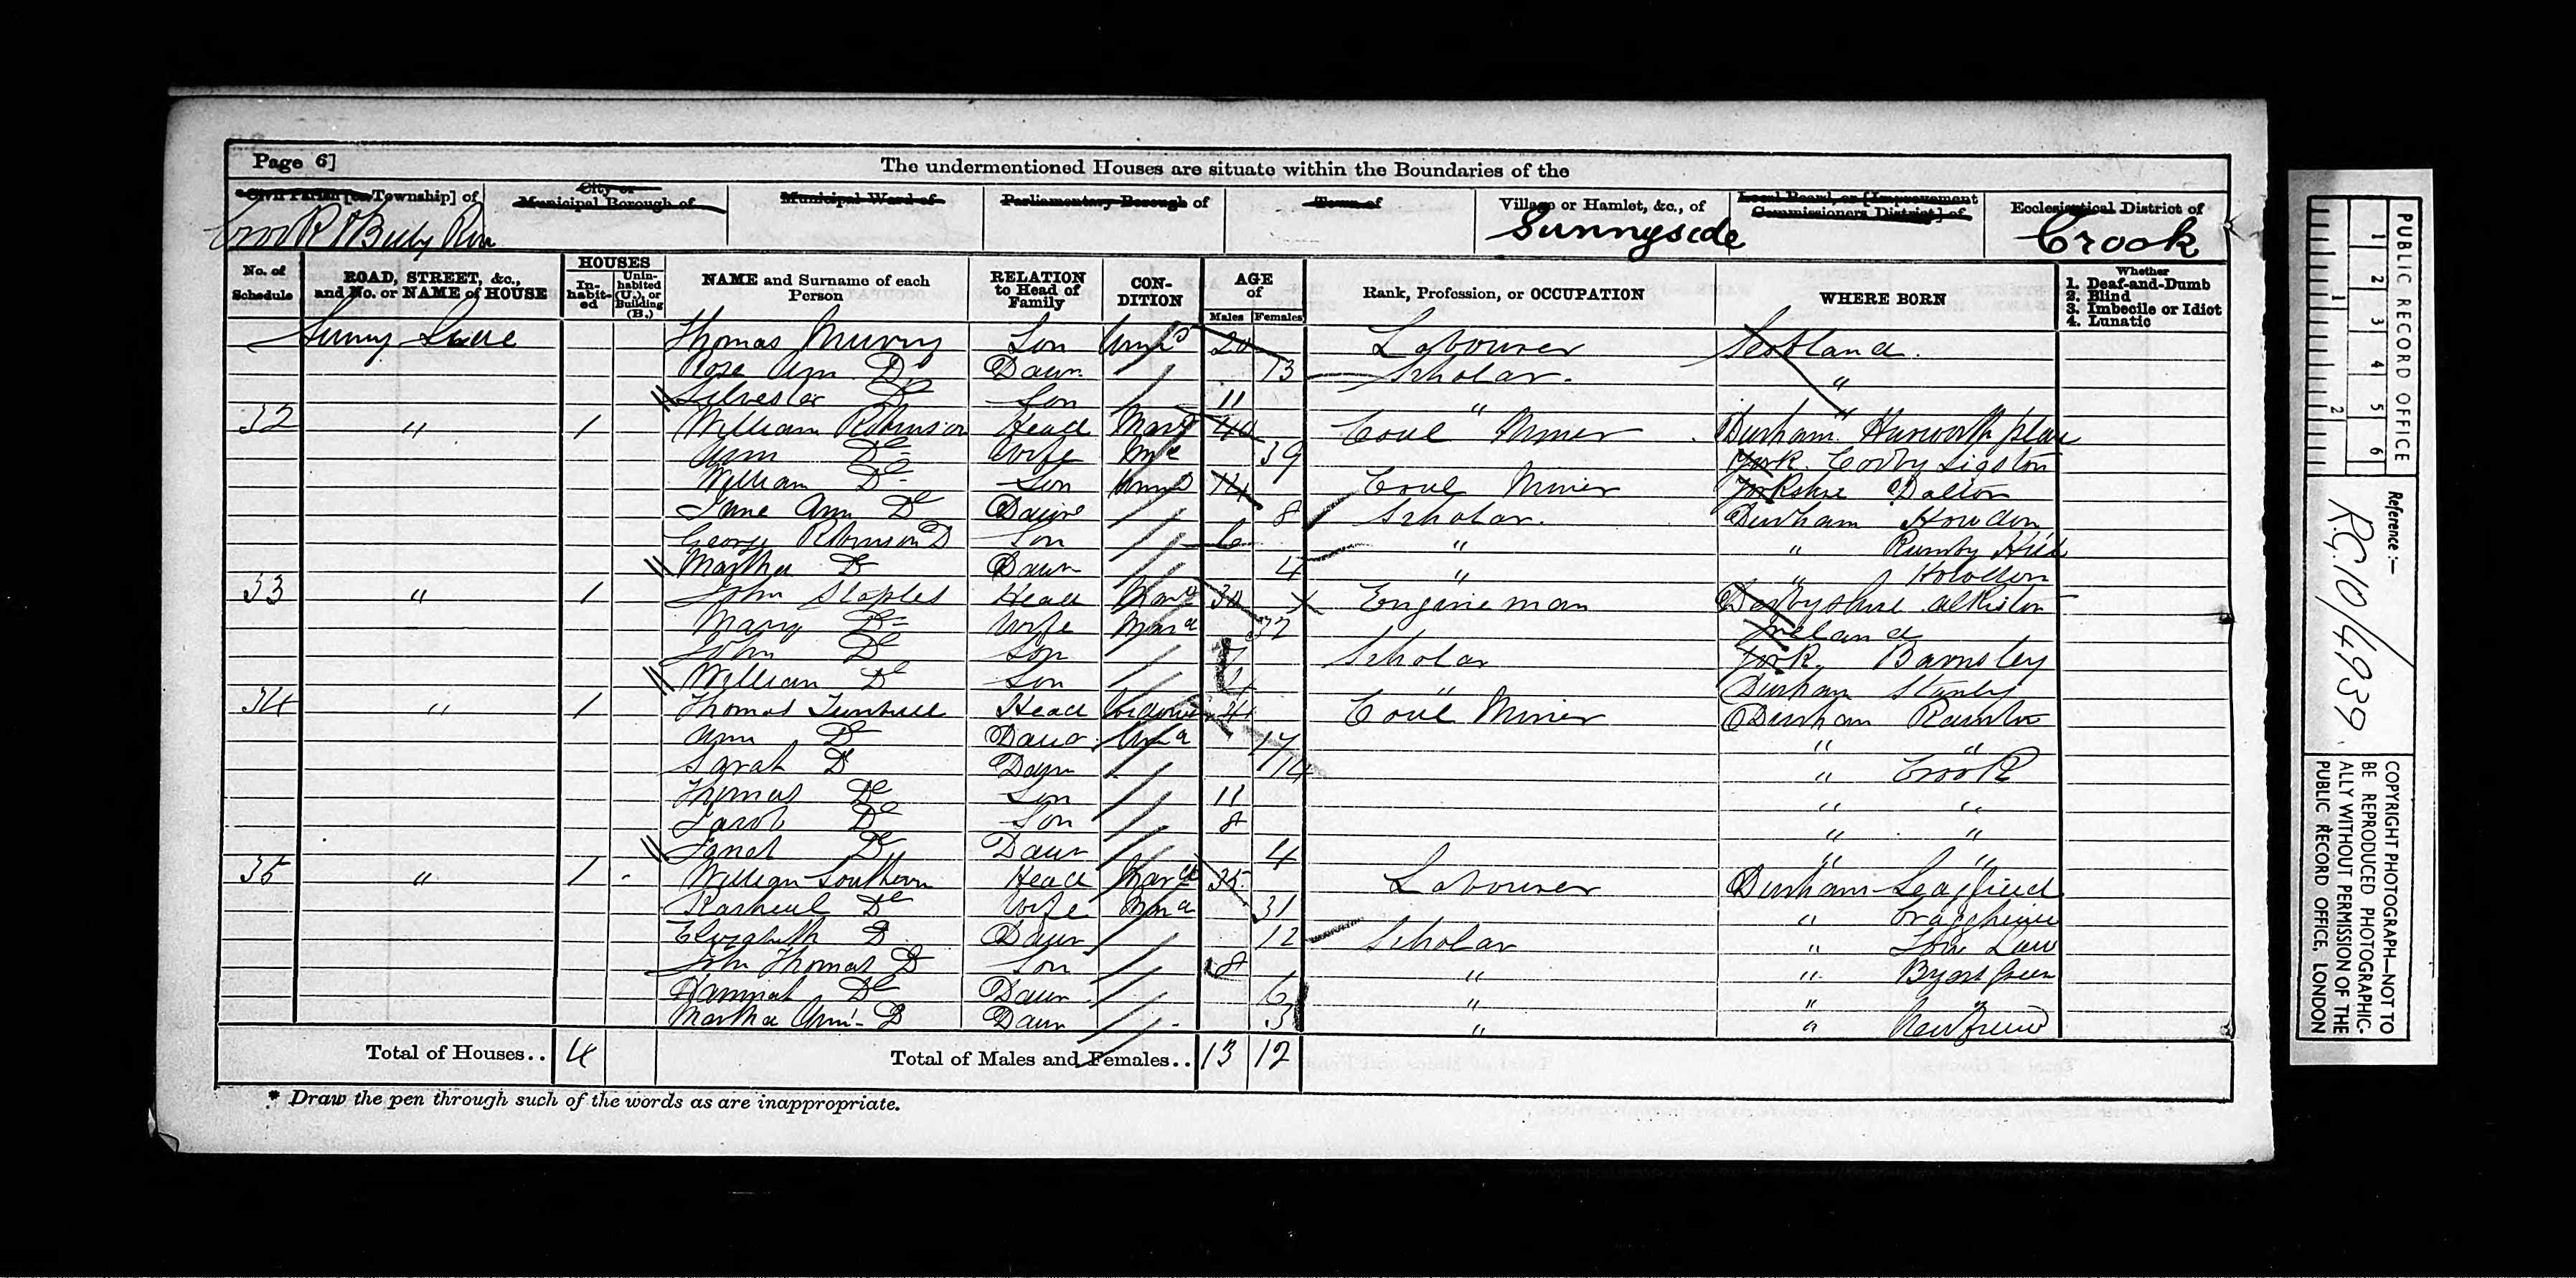 Page 6]
The undermentioned Houses are situate within the Boundaries of the
Civil Parish [or Township] of
City or Municipal Borough of
Municipal Ward of
Parliamentary Borough of
Town of
Village or Hamlet, &c., of
Local Board, or [Improvement Commissioners District] of
Ecclesiastical District of
Crook & Billy Row
Sunnyside
Crook
No. of Schedule
ROAD, STREET, &c., and No. or NAME of HOUSE
HOUSES
In-habit-ed
Unin-habited (U.), or Building (B.)
NAME and Surname of each Person
RELATION to Head of Family
CON-DITION
AGE of
Males
Females
Rank, Profession, or OCCUPATION
WHERE BORN
Whether
1. Deaf-and-Dumb
2. Blind
3. Imbecile or Idiot
4. Lunatic
Sunny Side Thomas Murry Son Unmd 20 Labourer Scotland
Rose Ann Do Daur 13 Scholar "
Silvester Do Son 11 " "
32 " 1 William Robinson Head Mard 40 Coal Miner Durham Hurworth place
Ann Do Wife 39 York
William Do Son Unmd 14 Coal Miner Yorkshire Dalton
Jane Ann Do Daur 8 Scholar Durham Howden
George Robinson Do Son 6 " " Rumby Hill
Martha Do Daur 4 " "
33 " 1 John Staples Head Mard 30 Engine man Derbyshire
Mary Do Wife Mard Ireland
John Do Son 7 Scholar York Barnsley
William Do Son " Durham Stanley
34 " 1 Thomas Turnbull Head Widower 41 Coal Miner Durham
Ann Do Daur 17 " "
Sarah Do Daur 14 " Crook
Thomas Do Son 11 " "
Jacob Do Son 8 " "
Janet Do Daur 4 " "
35 " 1 William Southern Head Mard 35 Labourer Durham
Do Wife Mard 31 "
Elizabeth Do Daur 12 Scholar " Tow Law
John Thomas Do Son 8 " " Byers Green
Hannah Do Daur 6 " "
Martha Ann Do Daur 3 " "
Total of Houses.. 4
Total of Males and Females.. 13 12
* Draw the pen through such of the words as are inappropriate.
PUBLIC RECORD OFFICE
1 2 3 4 5 6
1 2
Reference:—
R.G. 10/4939
COPYRIGHT PHOTOGRAPH—NOT TO
BE REPRODUCED PHOTOGRAPHIC-
ALLY WITHOUT PERMISSION OF THE
PUBLIC RECORD OFFICE, LONDON